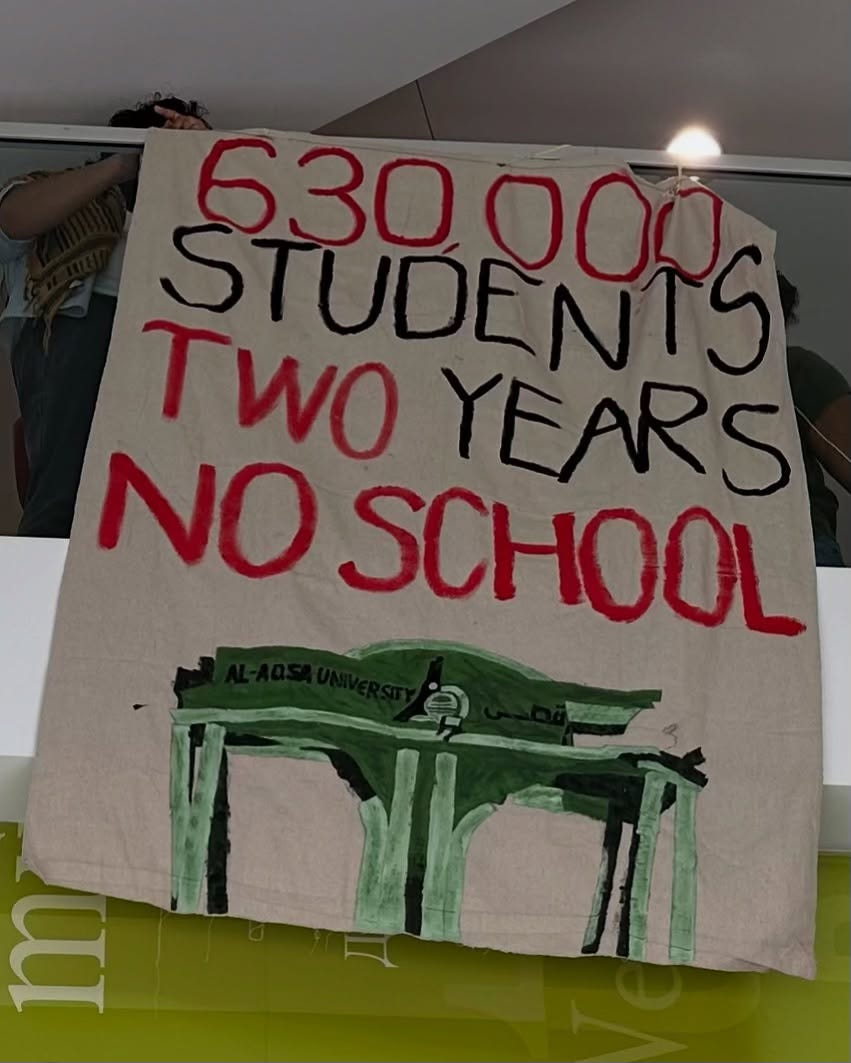 630,000
STUDENTS
TWO YEARS
NO SCHOOL
AL-AQSA UNIVERSITY
m
Ve